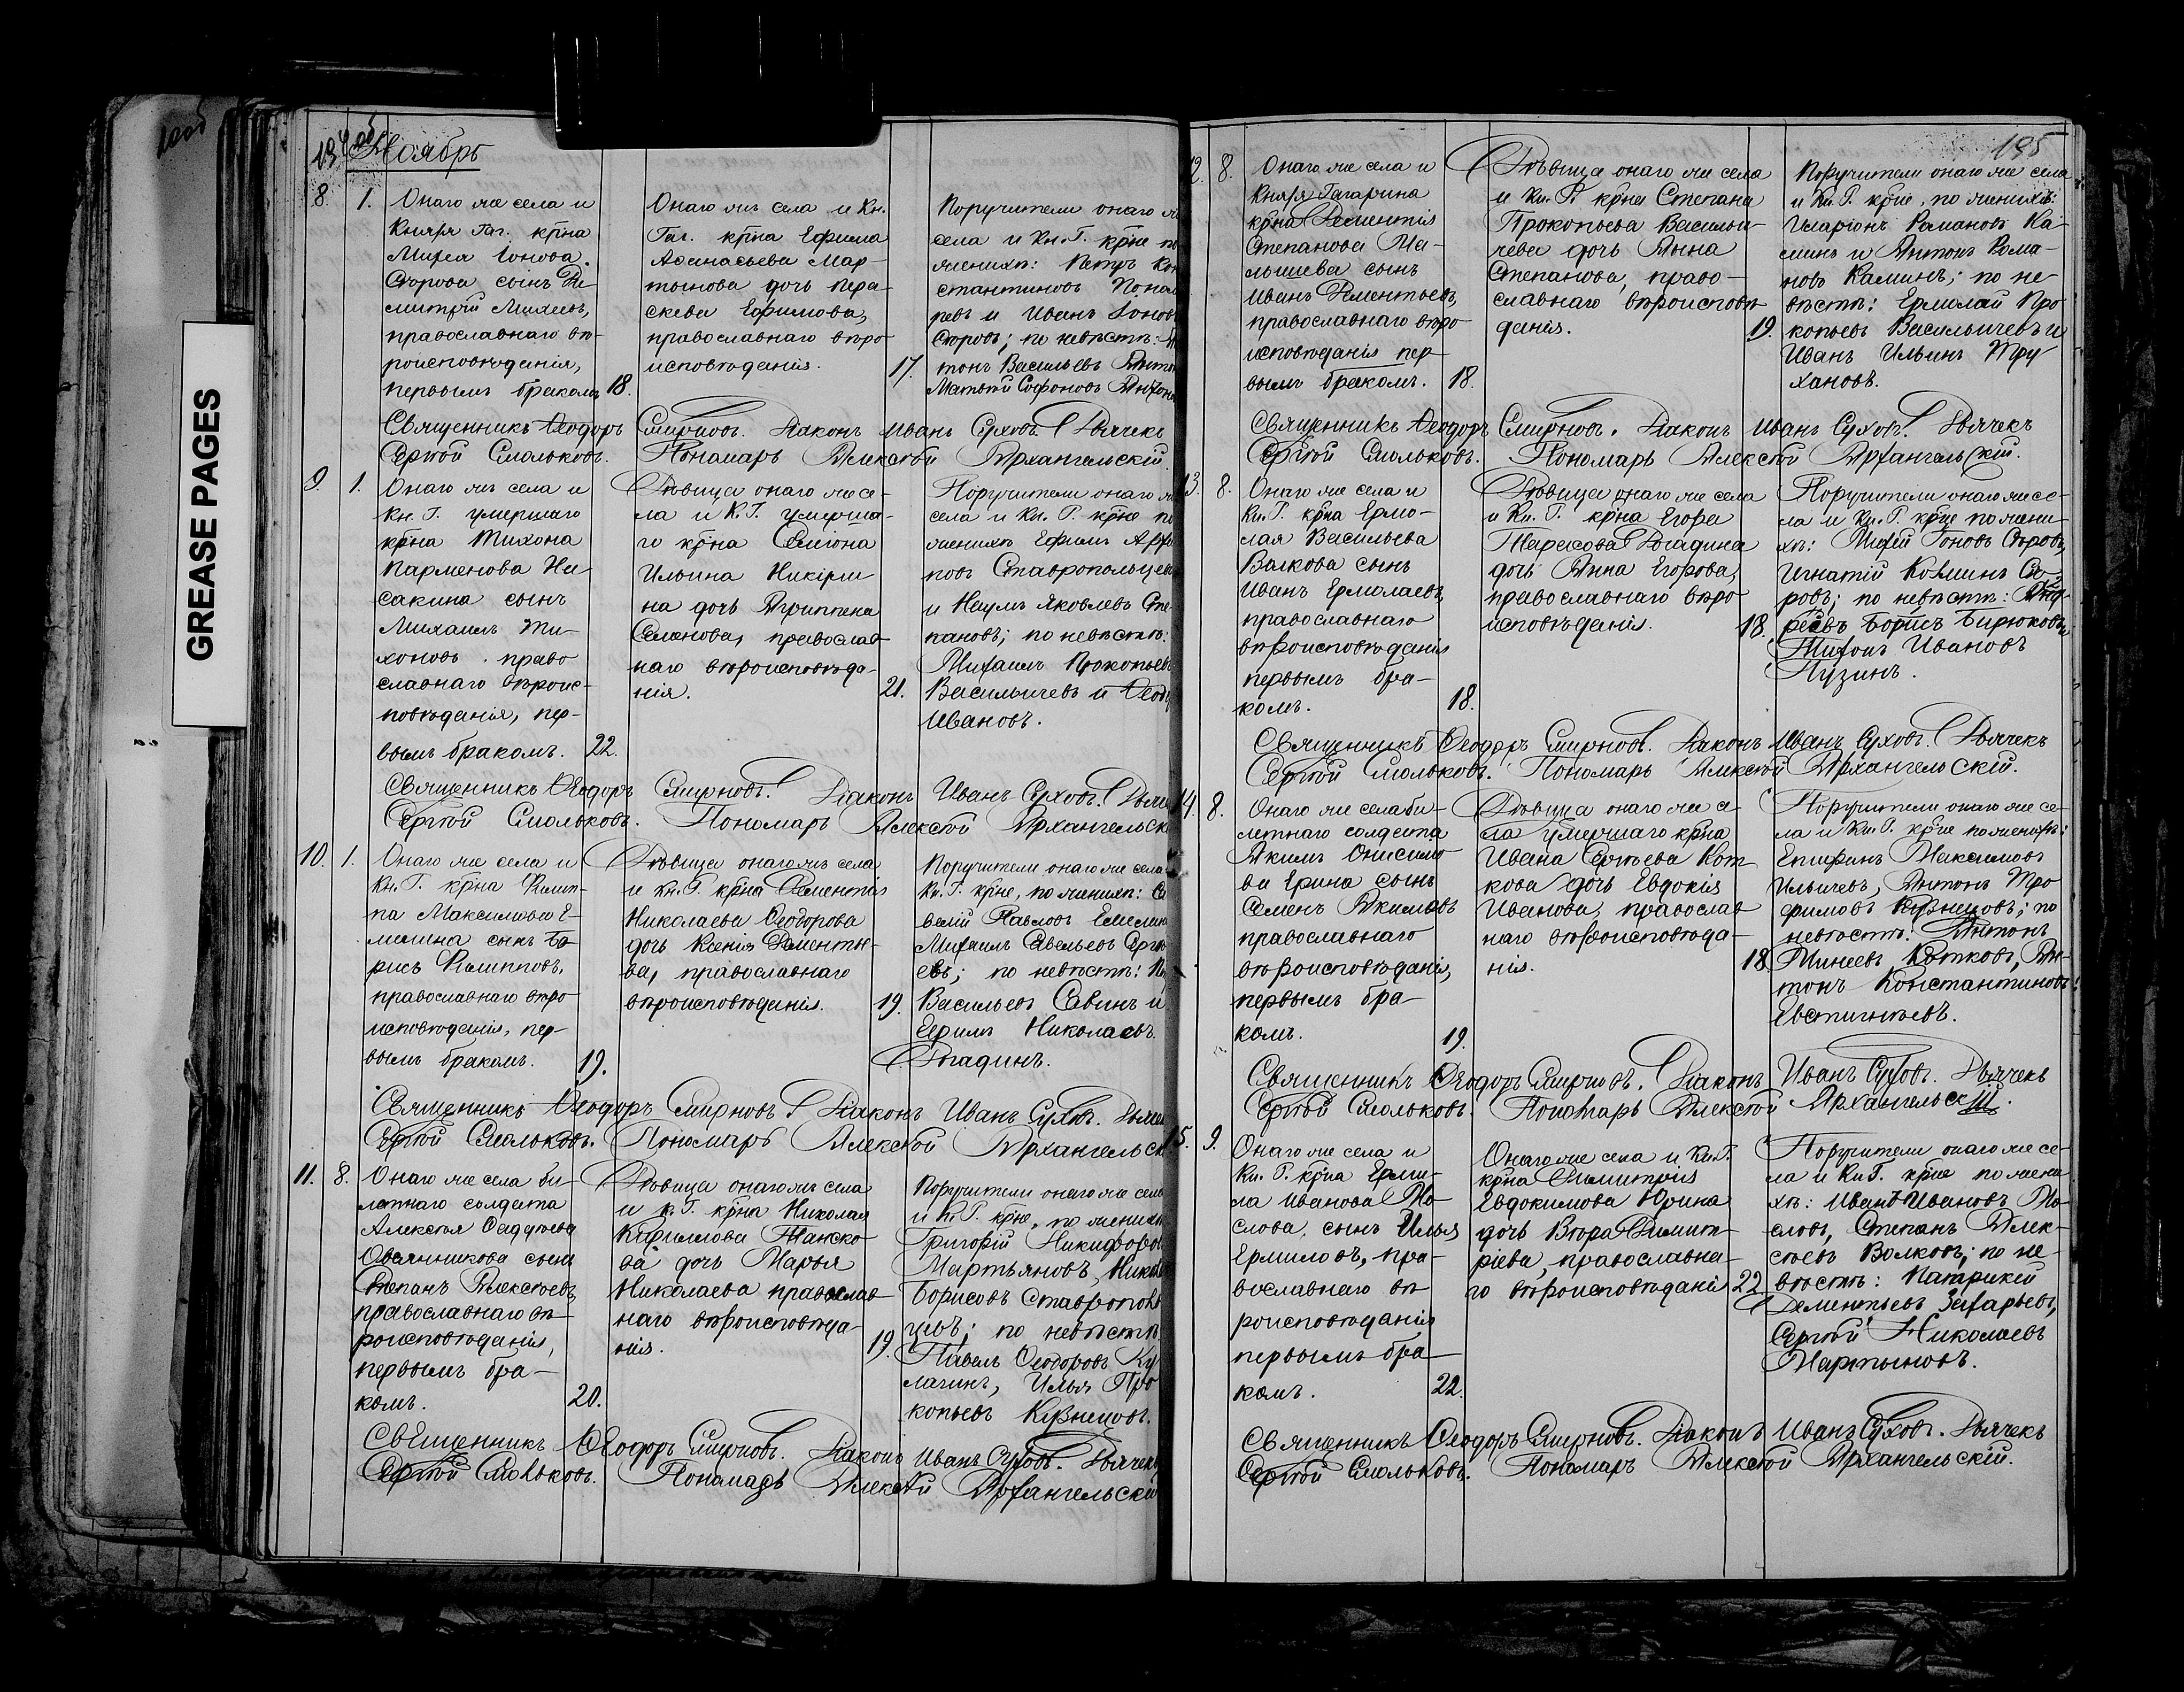 GREASE PAGES
134 об
Ноябрь
8. 1. Онаго же села и
Князя Гаг. кр̃на
Михея Іонова
сынъ Ди
митрій Михеевъ,
православнаго вѣ
роисповѣданія,
первымъ бракомъ 18.
Онаго жъ села и Кн.
Гаг. кр̃на Ефима
Аѳанасьева Мар-
тынова дочь Пара
скева Ефимова,
православнаго вѣро
исповѣданія. 17.
Поручители онаго
села и Кн. Г. кр̃не по
женихѣ: Петръ Кон
стантиновъ
ревъ и Иванъ Іоновъ
по невѣстѣ:
тонъ Васильевъ
Матвѣй Софоновъ
Священникъ Ѳеодоръ Смирновъ. Діаконъ Иванъ Суховъ. Дьячекъ
Сергѣй Смольковъ. Пономарь Алексѣй Архангельскій.
9. 1. Онаго жъ села и
Кн. Г. умершаго
кр̃на Тихона
Парменова Ни
сакина сынъ
Михаилъ Ти-
хоновъ. право
славнаго вѣроис-
повѣданія, пер-
вымъ бракомъ. 22.
Дѣвица онаго же се-
ла и К. Г. умерша-
го кр̃на Семена
Ильина
на дочь Агриппена
Семенова, православ
наго вѣроисповѣда-
нія. 21.
Поручители онаго
села и Кн. Г. кр̃не по
женихѣ Ефимъ
новъ
и Наумъ Яковлевъ Сте-
пановъ; по невѣстѣ:
Михаилъ Прокопьевъ
Васильичевъ и
Ивановъ.
Священникъ Ѳеодоръ Смирновъ. Діаконъ Иванъ Суховъ.
Сергѣй Смольковъ. Пономарь Алексѣй
10. 1. Онаго же села и
Кн. Г. кр̃на Филип-
па Максимова Е-
мелина сынъ Бо-
рисъ Филипповъ,
православнаго вѣро
исповѣданія, пер-
вымъ бракомъ. 19.
Дѣвица онаго жъ села
и кн. Г. кр̃на Дементія
Николаева Ѳеодорова
дочь Ксенія Дементь-
ева, православнаго
вѣроисповѣданія. 19.
Поручители онаго же села
Кн. Г. кр̃не, по женихѣ: Са
велій Павловъ
Михаилъ Савельевъ
евъ; по невѣстѣ:
Васильевъ Савинъ и
Ефимъ Николаевъ
Рогадинъ.
Священникъ Ѳеодоръ Смирновъ. Діаконъ Иванъ Суховъ.
Сергѣй Смольковъ. Пономарь Алексѣй
11. 8. Онаго же села би-
летнаго солдата
Алексѣя Ѳаддѣева
Овсянникова сынъ
Степанъ Алексѣевъ
православнаго вѣ
роисповѣданія,
первымъ бра-
комъ. 20.
Дѣвица онаго жъ села
и к. Г. кр̃на Николая
Кириллова Танско-
ва дочь Марья
Николаева православ
наго вѣроисповѣда-
нія. 19.
Поручители онаго же села
и К. Г. кр̃не, по женихѣ
Григорій Никифоровъ
Мартьяновъ,
Борисовъ Ставрополь
цовъ; по невѣстѣ
Павелъ Ѳеодоровъ Ку
лагинъ, Илья Про
копьевъ Кузнецовъ.
Священникъ Ѳеодоръ Смирновъ. Діаконъ Иванъ Суховъ. Дьячекъ
Сергѣй Смольковъ. Пономарь Алексѣй Архангельскій
135
12. 8. Онаго же села и
Князя Гагарина
кр̃на Дементія
Степанова Ма-
лышева сынъ
Иванъ Дементьевъ,
православнаго вѣро
исповѣданія пер-
вымъ бракомъ. 18.
Дѣвица онаго же села
и Кн. Г. кр̃на Степана
Прокопьева Васильи-
чева дочь Анна
Степанова, право-
славнаго вѣроисповѣ
данія. 19.
Поручители онаго же села
и Кн. Г. кр̃не, по женихѣ:
Иларіонъ Романовъ Ка-
минъ и Антонъ Рома-
новъ Каминъ; по не-
вѣстѣ: Ермолай Про
копьевъ Васильичевъ и
Иванъ Ильинъ Тру
хановъ.
Священникъ Ѳеодоръ Смирновъ. Діаконъ Иванъ Суховъ. Дьячекъ
Сергѣй Смольковъ. Пономарь Алексѣй Архангельскій.
13. 8. Онаго же села и
Кн. Г. кр̃на Ермо-
лая Васильева
Волкова сынъ
Иванъ Ермолаевъ,
православнаго
вѣроисповѣданія
первымъ бра-
комъ. 18.
Дѣвица онаго же села
и Кн. Г. кр̃на Егора
Тарасова Рогадина
дочь Анна Егорова,
православнаго вѣро
исповѣданія. 18.
Поручители онаго же се-
ла и Кн. Г. кр̃не по жени-
хѣ: Михей Іоновъ
Игнатій
ровъ; по невѣстѣ: Анд
реевъ Борисъ Бирюковъ,
Тихонъ Ивановъ
Пузинъ.
Священникъ Ѳеодоръ Смирновъ. Діаконъ Иванъ Суховъ. Дьячекъ
Сергѣй Смольковъ. Пономарь Алексѣй Архангельскій.
14. 8. Онаго же села би-
летнаго солдата
Акима Онисимо
ва Ерина сынъ
Семенъ Акимовъ
православнаго
вѣроисповѣданія,
первымъ бра-
комъ. 19.
Дѣвица онаго же се-
ла умершаго кр̃на
Ивана Сергѣева Кот-
кова дочь Евдокія
Иванова, православ
наго вѣроисповѣда-
нія. 18.
Поручители онаго же се-
ла и Кн. Г. кр̃не по женихѣ:
Епифанъ Максимовъ
Ильичевъ, Антонъ Тро
фимовъ Кузнецовъ; по
невѣстѣ: Антонъ
Минеевъ Котковъ, Ан-
тонъ Константиновъ
Евстигнѣевъ.
Священникъ Ѳеодоръ Смирновъ. Діаконъ Иванъ Суховъ. Дьячекъ
Сергѣй Смольковъ. Пономарь Алексѣй Архангельскій.
15. 9. Онаго же села и
Кн. Г. кр̃на Ерми-
ла Иванова Мо-
слова, сынъ Илья
Ермиловъ, пра-
вославнаго вѣ
роисповѣданія
первымъ бра-
комъ. 22.
Онаго же села и Кн. Г.
кр̃на Димитрія
Евдокимова Юрина
дочь Вѣра Димит-
ріева, православна-
го вѣроисповѣданія 22.
Поручители онаго же се-
ла и Кн. Г. кр̃не по жени
хѣ: Иванъ Ивановъ Мо-
словъ, Степанъ Алек-
сѣевъ Волковъ; по не-
вѣстѣ: Патрикѣй
Дементьевъ Захарьевъ,
Сергѣй Николаевъ
Мартыновъ.
Священникъ Ѳеодоръ Смирновъ. Діаконъ Иванъ Суховъ. Дьячекъ
Сергѣй Смольковъ. Пономарь Алексѣй Архангельскій.